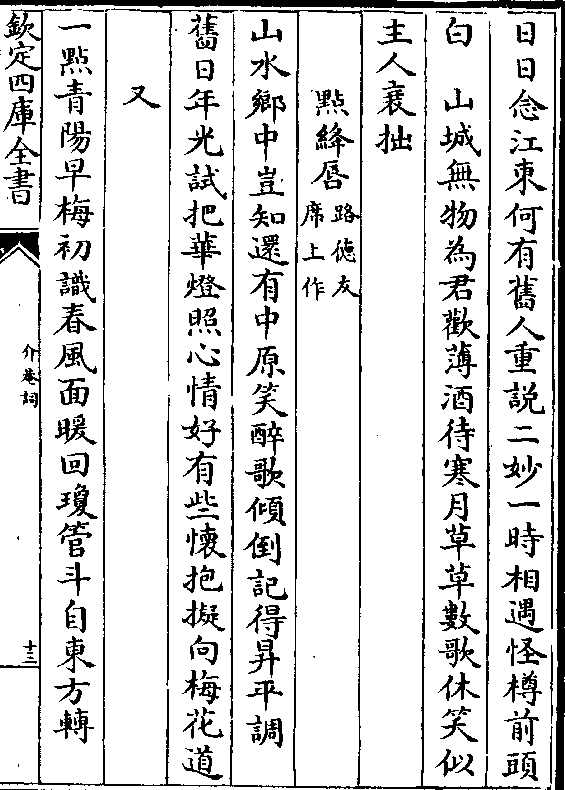 日日念江東何有舊人重説二妙一時相遇怪樽前頭
白　山城無物為君歡薄酒待寒月草草數歌休笑似
主人衰拙
點絳唇路徳友席上作
山水鄉中豈知還有中原笑醉歌傾倒記得昇平調
舊日年光試把華燈照心情好有些懷抱擬向梅花道
又
一點青陽早梅初識春風面暖回瓊管斗自東方轉
欽定四庫全書
介菴詞
十三